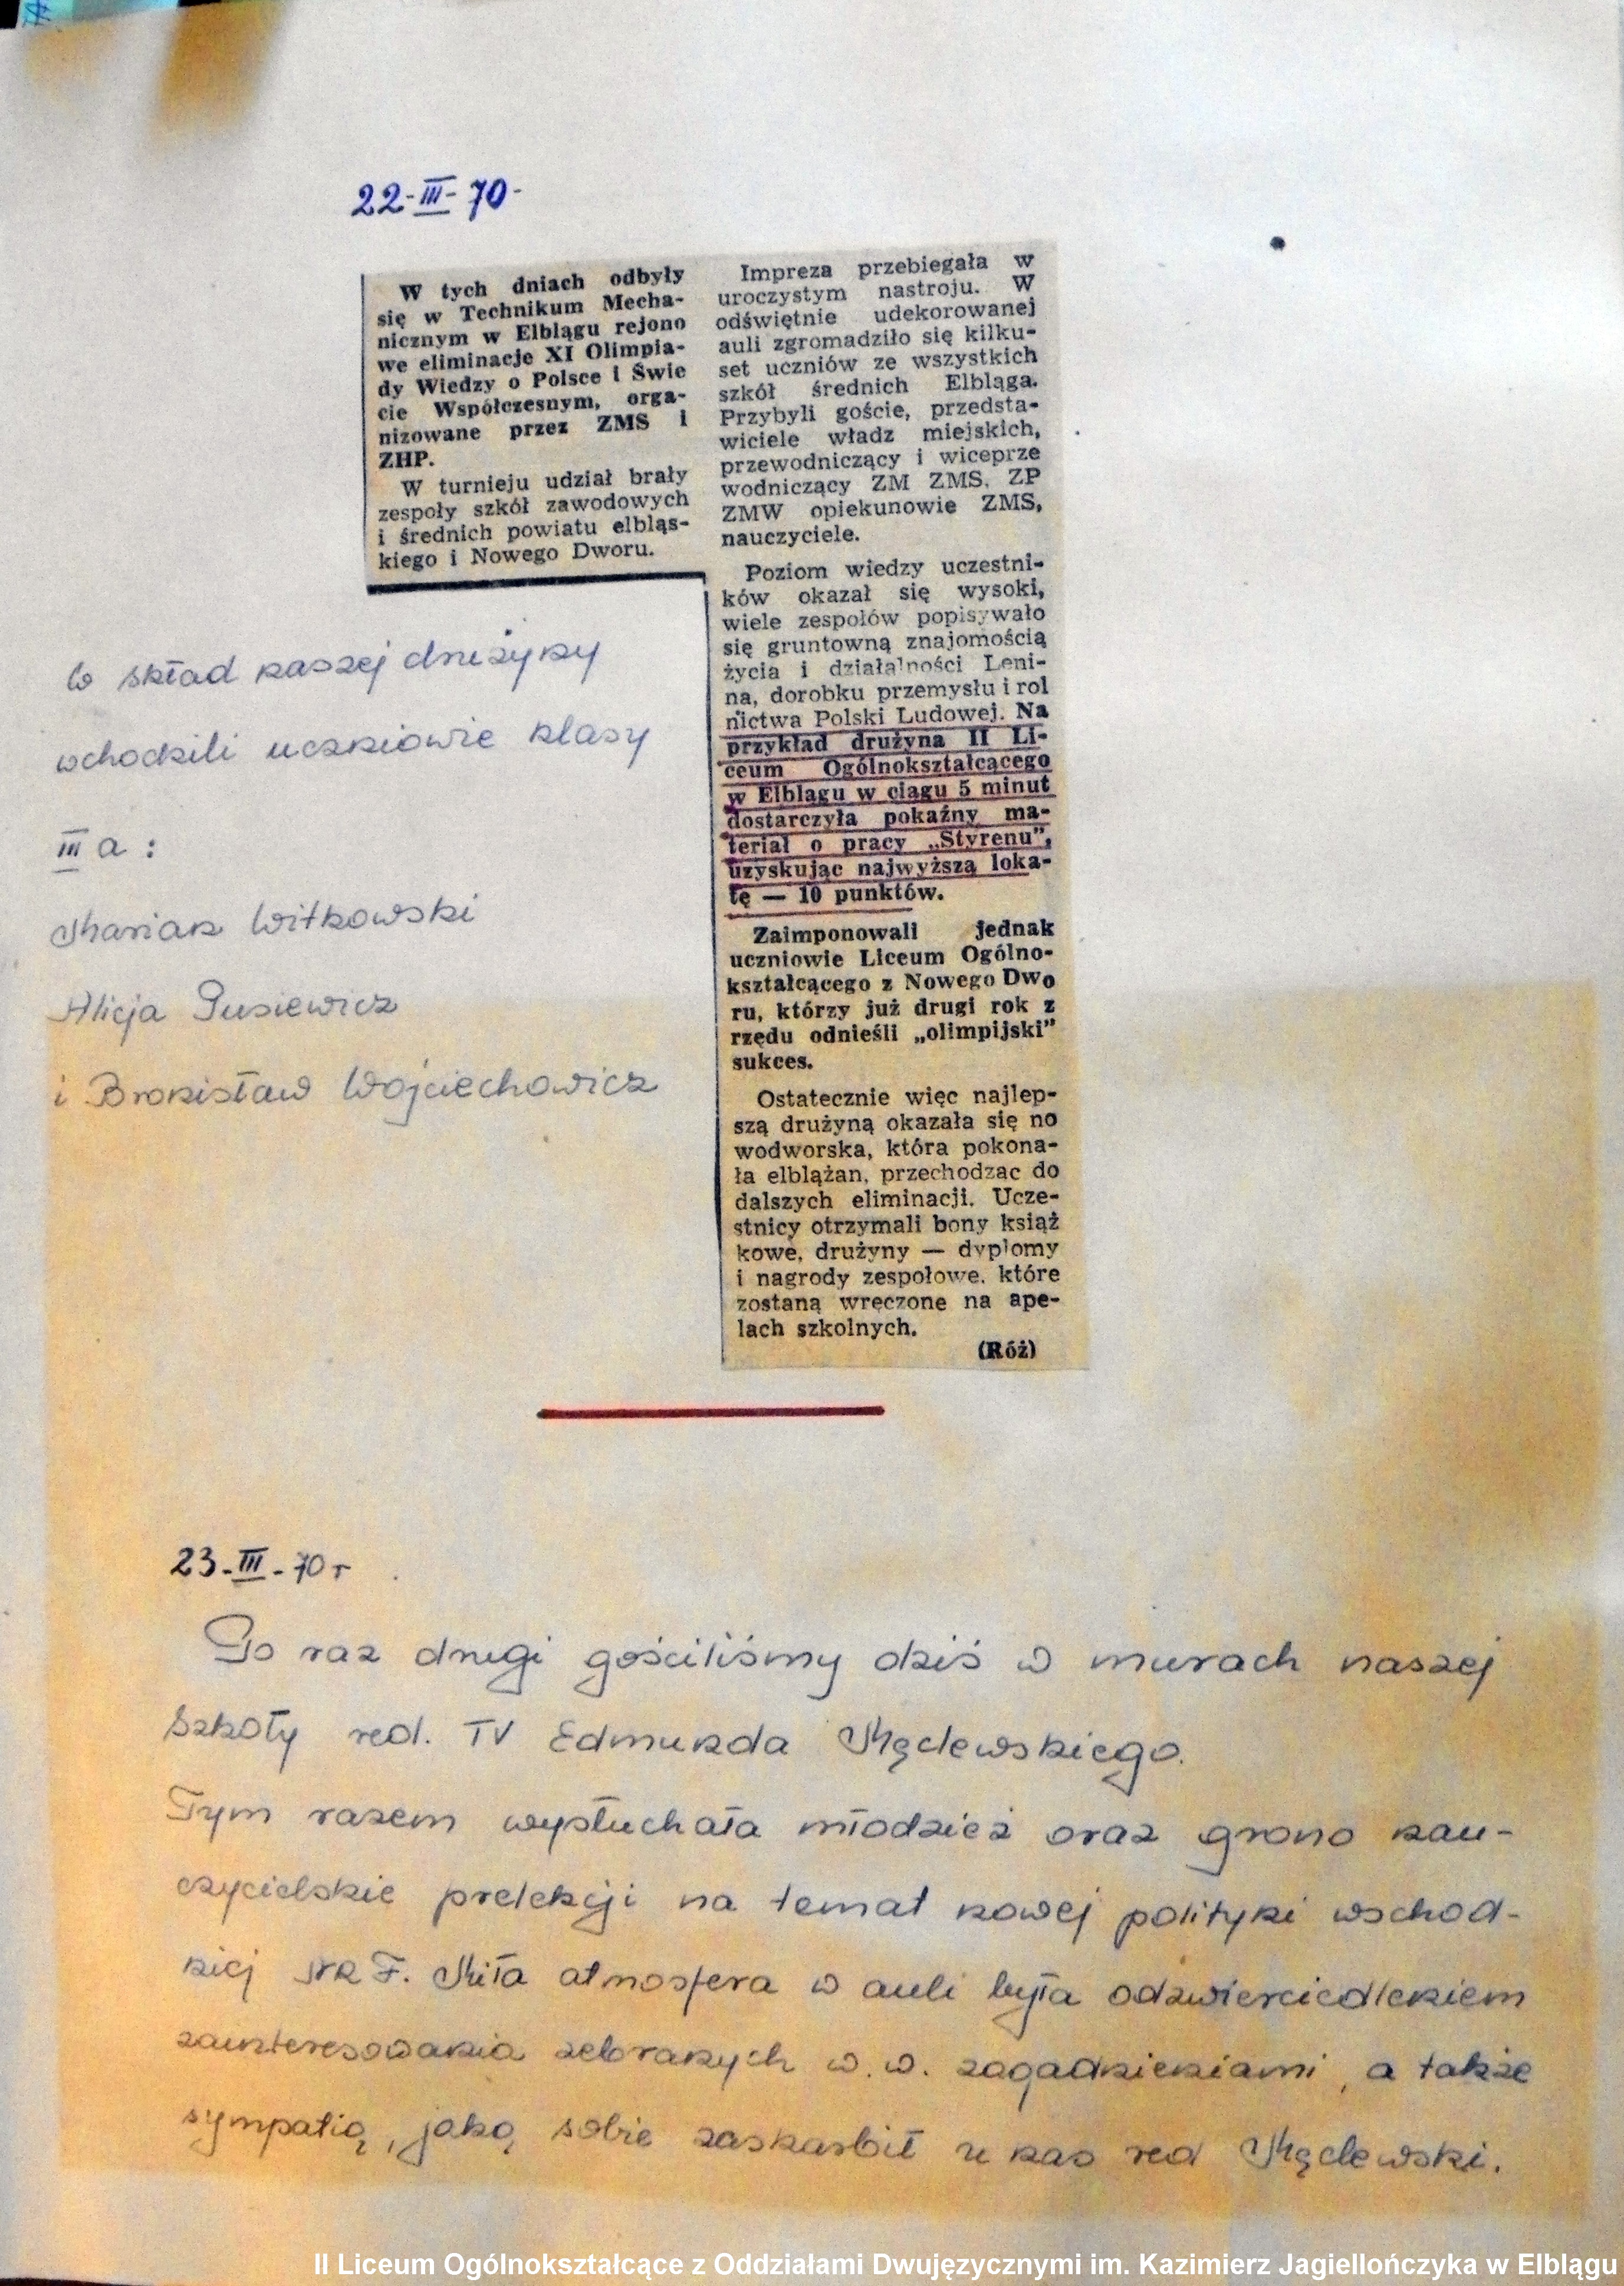 22-III-70-
W tych dniach odbyły
się w Technikum Mecha-
nicznym w Elblągu rejono
we eliminacje XI Olimpia-
dy Wiedzy o Polsce i Świe
cie Współczesnym, orga-
nizowane przez ZMS i
ZHP.
W turnieju udział brały
zespoły szkół zawodowych
i średnich powiatu elbląs-
kiego i Nowego Dworu.
Impreza przebiegała w
uroczystym nastroju. W
odświętnie udekorowanej
auli zgromadziło się kilku-
set uczniów ze wszystkich
szkół średnich Elbląga.
Przybyli goście, przedsta-
wiciele władz miejskich,
przewodniczący i wiceprze
wodniczący ZM ZMS, ZP
ZMW opiekunowie ZMS,
nauczyciele.
Poziom wiedzy uczestni-
ków okazał się wysoki,
wiele zespołów popisywało
się gruntowną znajomością
życia i działalności Leni-
na, dorobku przemysłu i rol
nictwa Polski Ludowej. Na
przykład drużyna II Li-
ceum Ogólnokształcącego
w Elblągu w ciągu 5 minut
dostarczyła pokaźny ma-
teriał o pracy „Styrenu”,
uzyskując najwyższą loka-
tę — 10 punktów.
Zaimponowali jednak
uczniowie Liceum Ogólno-
kształcącego z Nowego Dwo
ru, którzy już drugi rok z
rzędu odnieśli „olimpijski”
sukces.
Ostatecznie więc najlep-
szą drużyną okazała się no
wodworska, która pokona-
ła elblążan, przechodząc do
dalszych eliminacji. Ucze-
stnicy otrzymali bony książ
kowe, drużyny — dyplomy
i nagrody zespołowe, które
zostaną wręczone na ape-
lach szkolnych.
(Róż)
W skład naszej drużyny
wchodzili uczniowie klasy
III a :
Marian Witkowski
Alicja Gusiewicz
i Bronisław Wojciechowicz
23-III-70 r
Po raz drugi gościliśmy dziś w murach naszej
szkoły red. TV Edmunda Męclewskiego.
Tym razem wysłuchała młodzież oraz grono nau-
czycielskie prelekcji na temat nowej polityki wschod-
niej NRF. Miła atmosfera w auli była odzwierciedleniem
zainteresowania zebranych w.w. zagadnieniami, a także
sympatią, jaką sobie zaskarbił u nas red Męclewski.
II Liceum Ogólnokształcące z Oddziałami Dwujęzycznymi im. Kazimierz Jagiellończyka w Elblągu